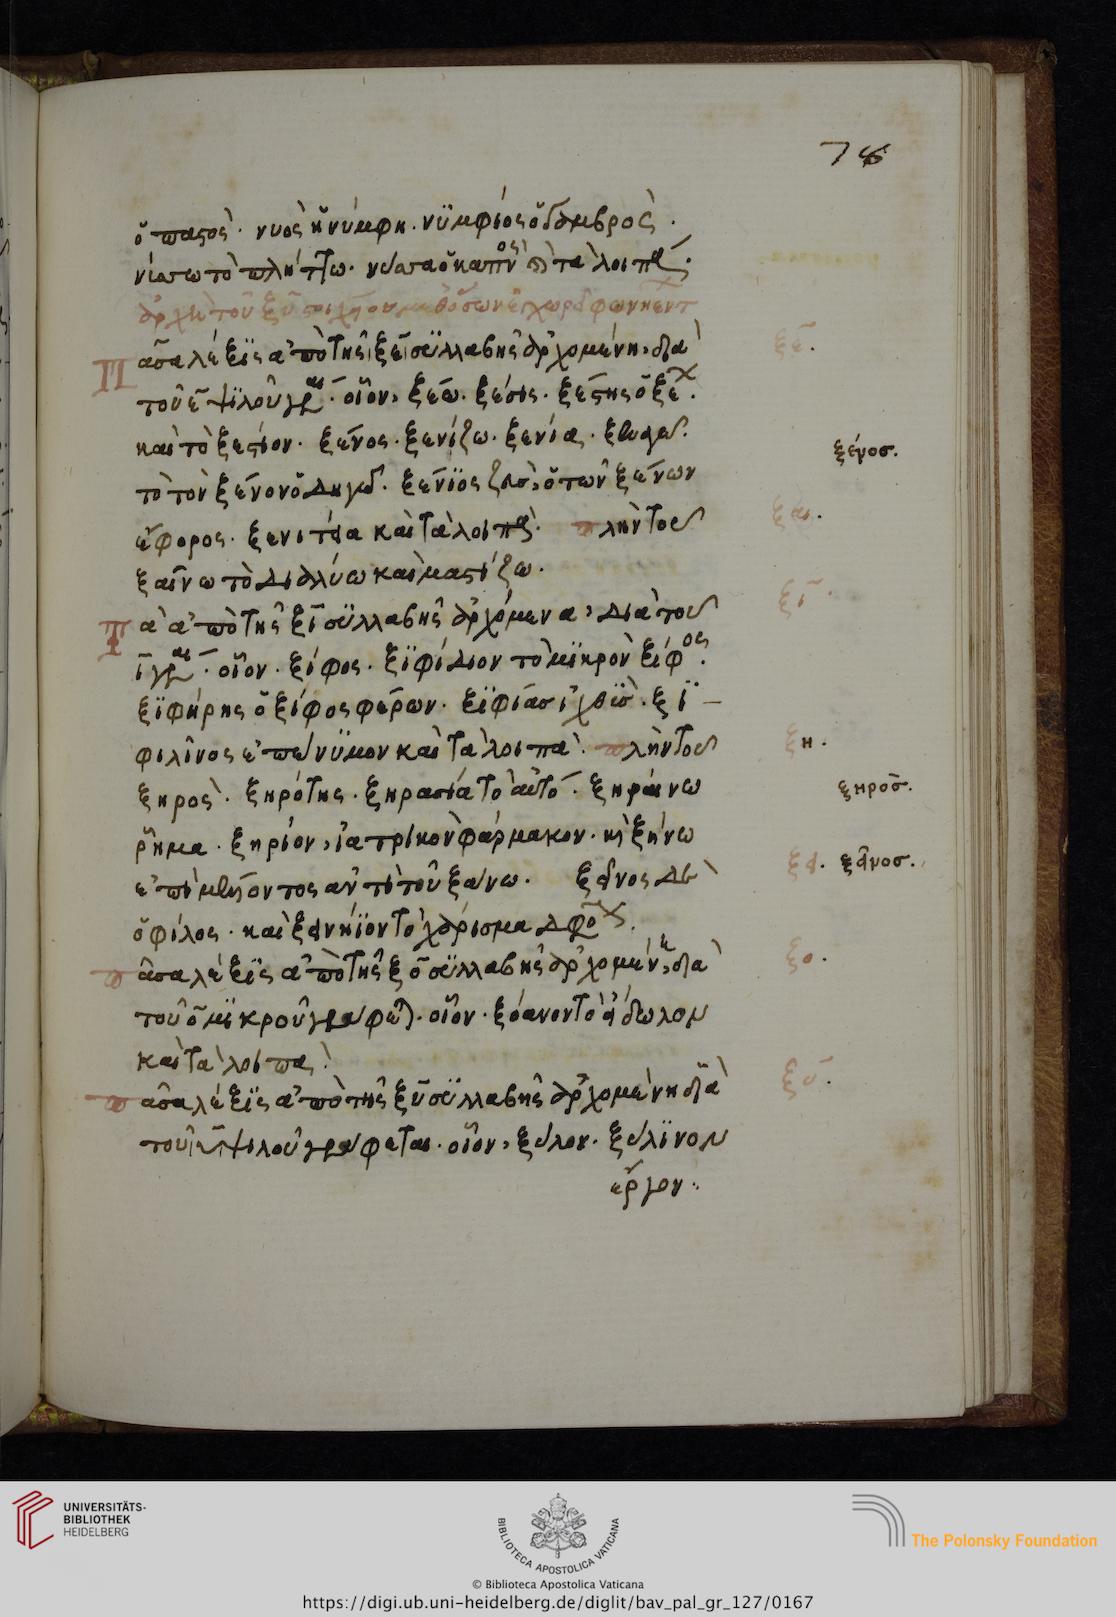 78
ὁ παστὸς. νυὸς ἡ νύμφη. νυμφίος ὁ γαμβρὸς.
νύσσω τὸ πλήττω. καὶ τὰ λοιπὰ.
ἀρχὴ τοῦ ξ στοιχείου
Πᾶσα λέξις ἀπὸ τῆς ξε συλλαβῆς ἀρχομένη, διὰ
τοῦ ε ψιλοῦ γράφεται. οἷον, ξέω. ξέσις. ξέστης ὁ ξέστης.
καὶ τὸ ξεστίον. ξένος. ξενίζω. ξενία.
τὸ τὸν ξένον ὁδηγῶ. ξένιος ζεὺς, ὁ τῶν ξένων
ἔφορος. ξενιτεία καὶ τὰ λοιπὰ. πλὴν τοῦ
ξαίνω τὸ διαλύω καὶ μαστίζω.
Τὰ ἀπὸ τῆς ξι συλλαβῆς ἀρχόμενα, διὰ τοῦ
ι γράφεται. οἷον. ξίφος. ξιφίδιον τὸ μικρὸν ξίφος.
ξιφήρης ὁ ξίφος φέρων. ξιφίας ἰχθὺς. ξι
φιλῖνος ἐπώνυμον καὶ τὰ λοιπὰ. πλὴν τοῦ
ξηρὸς. ξηρότης. ξηρασία τὸ αὐτό. ξηραίνω
ῥῆμα. ξηρίον, ἰατρικὸν φάρμακον. κὴ ξήνω
ξεῖνος δὲ
ὁ φίλος. καὶ ξεινήϊον τὸ χάρισμα
πᾶσα λέξις ἀπὸ τῆς ξο συλλαβῆς ἀρχομένη, διὰ
τοῦ ο μικροῦ γράφεται. οἷον. ξόανον τὸ εἴδωλον
καὶ τὰ λοιπὰ.
πᾶσα λέξις ἀπὸ τῆς ξυ συλλαβῆς ἀρχομένη διὰ
τοῦ υ ψιλοῦ γράφεται. οἷον, ξύλον. ξύλινον
ἔργον.
ξε.
ξένοσ.
ξαι.
ξι.
ξη.
ξηρόσ.
ξει. ξεῖνοσ.
ξο.
ξυ.
UNIVERSITÄTS-
BIBLIOTHEK
HEIDELBERG
BIBLIOTECA APOSTOLICA VATICANA
The Polonsky Foundation
© Biblioteca Apostolica Vaticana
https://digi.ub.uni-heidelberg.de/diglit/bav_pal_gr_127/0167